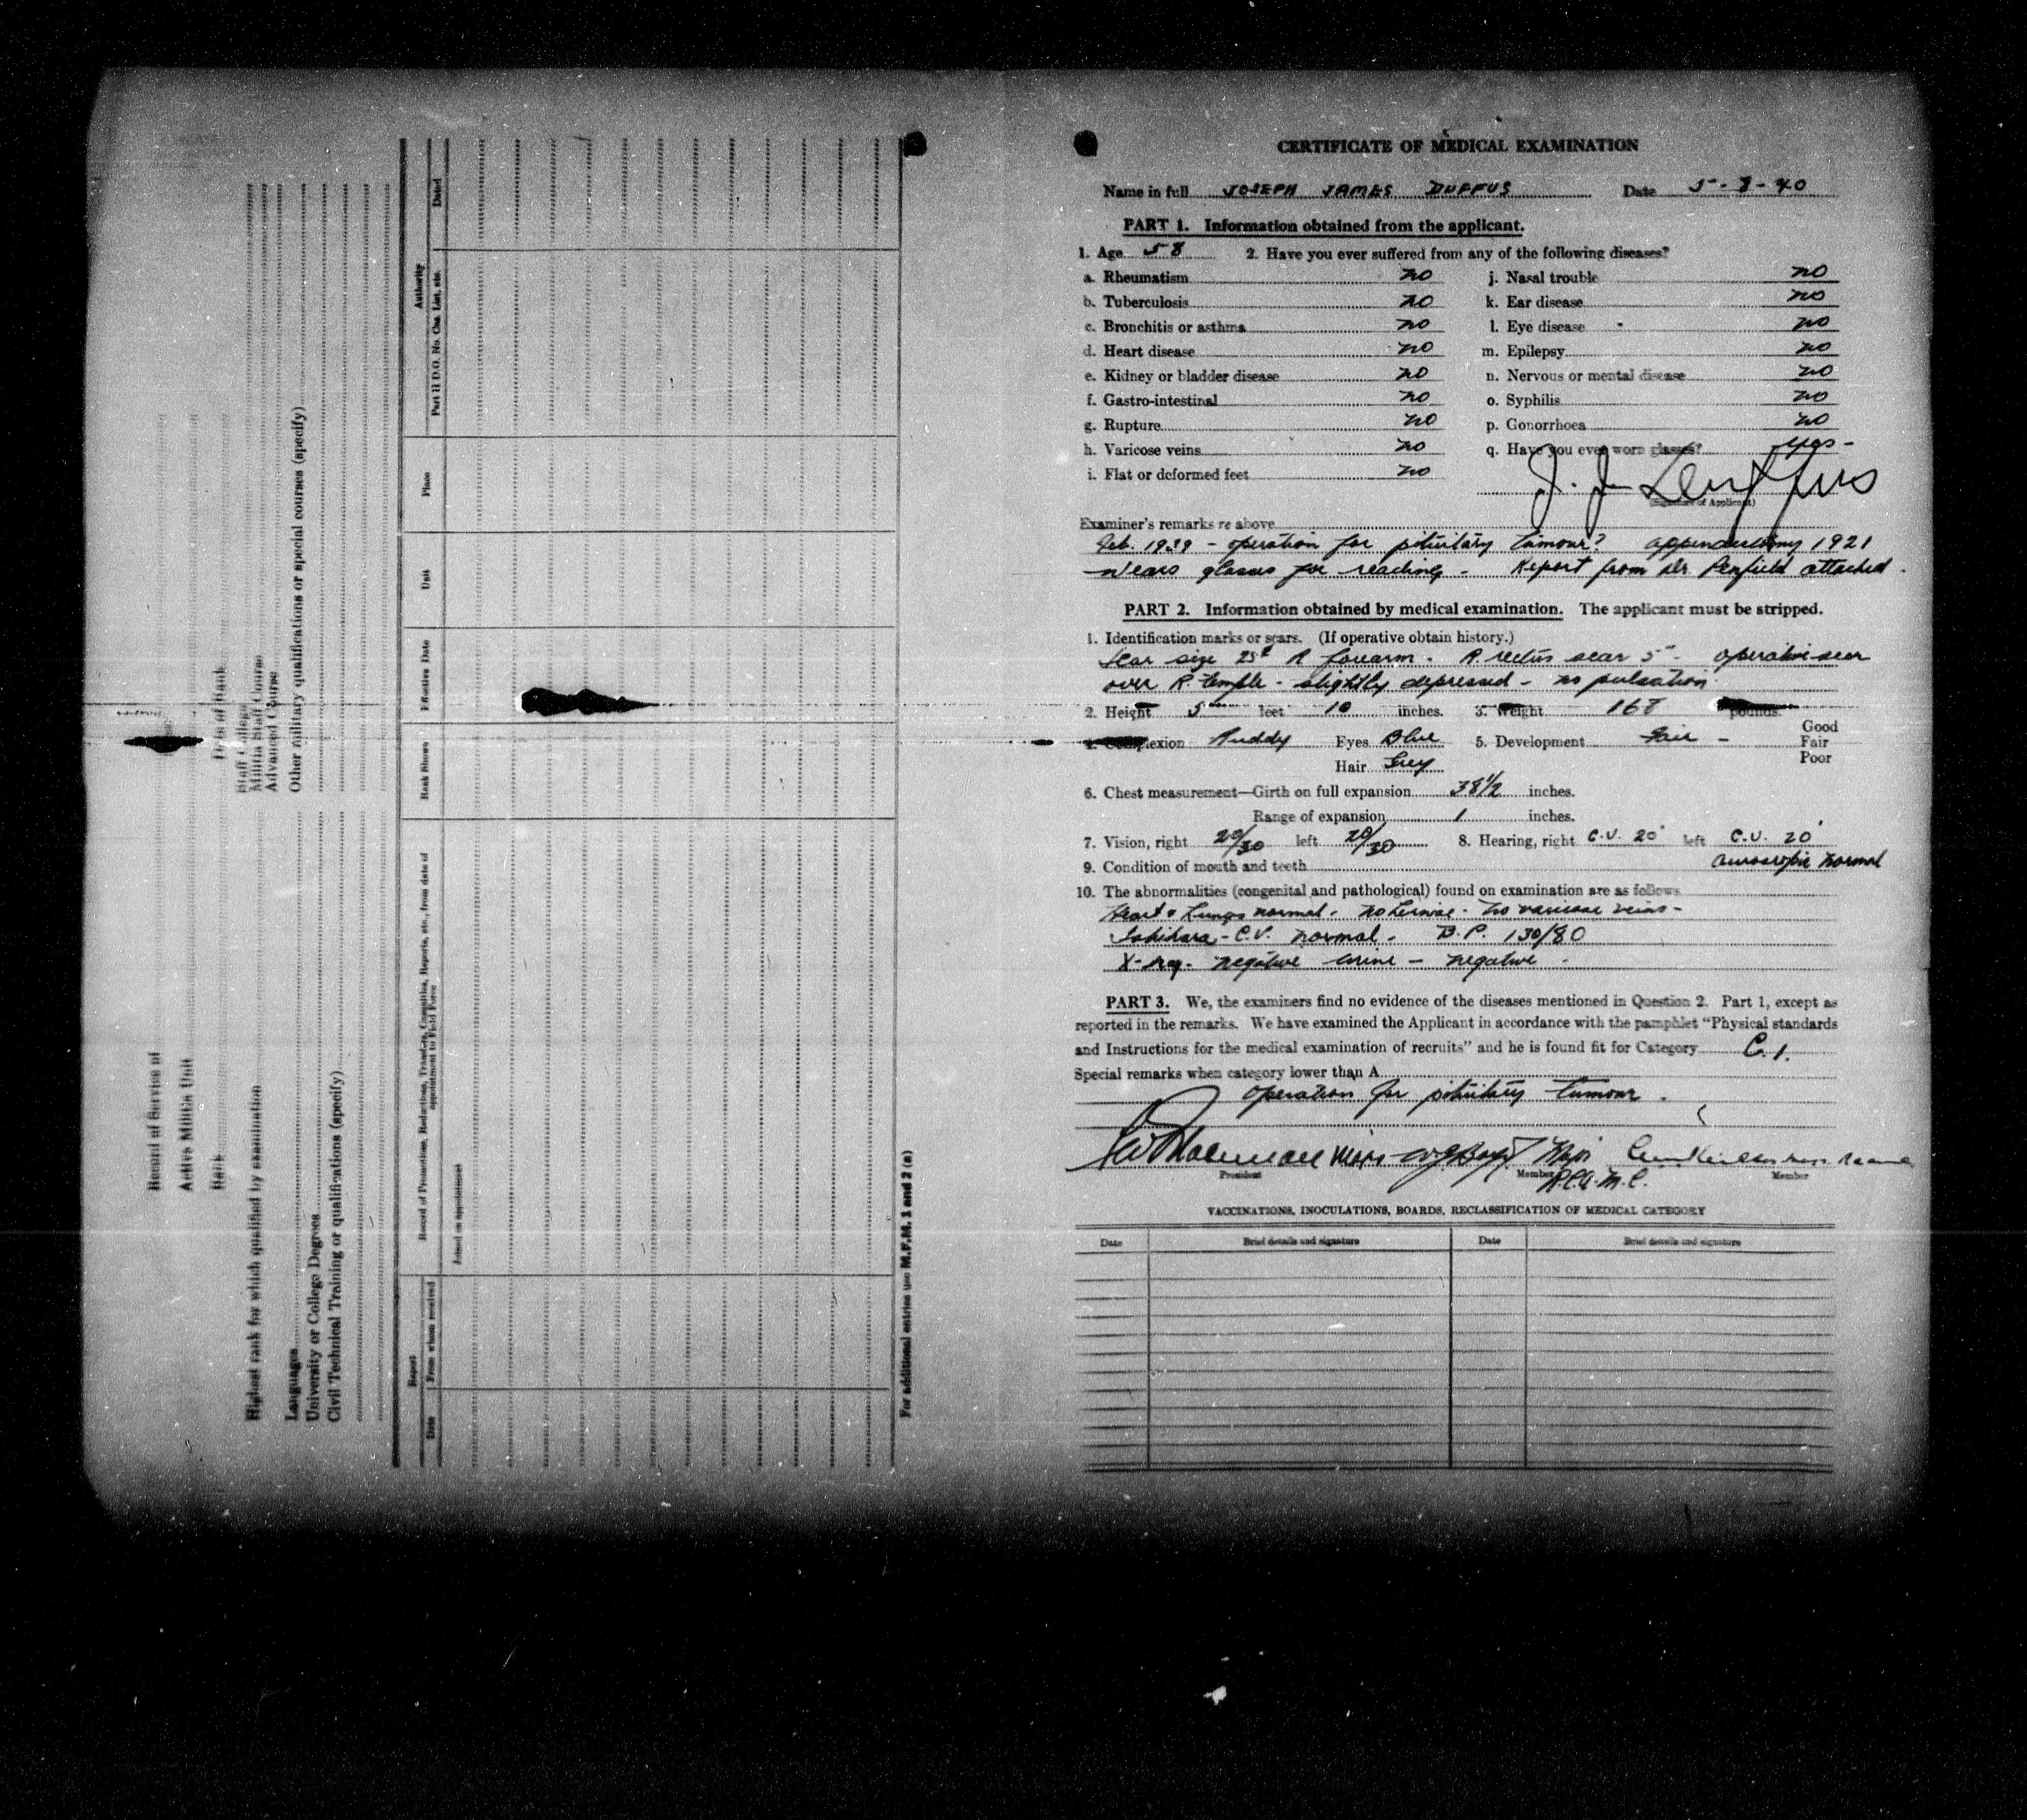 Record of Service of
Active Militia Unit
Rank Date of Rank
Highest rank for which qualified by examination
Staff College
Militia Staff Course
Advanced Course
Languages
University or College Degrees
Other military qualifications or special courses (specify)
Civil Technical Training or qualifications (specify)
Report
Date From whom received
Record of Promotions, Reductions, Transfers, Casualties, Reports, etc., from date of
appointment to Field Force
Rank Shown Effective Date Unit Place
Authority
Part II D.O. No. Cas. List, etc. Dated
Joined on appointment
For additional entries use M.F.M. 1 and 2 (a)
CERTIFICATE OF MEDICAL EXAMINATION
Name in full JOSEPH JAMES DUFFUS Date 5-8-40
PART 1. Information obtained from the applicant.
1. Age 58 2. Have you ever suffered from any of the following diseases?
a. Rheumatism no j. Nasal trouble no
b. Tuberculosis no k. Ear disease no
c. Bronchitis or asthma no l. Eye disease no
d. Heart disease no m. Epilepsy no
e. Kidney or bladder disease no n. Nervous or mental disease no
f. Gastro-intestinal no o. Syphilis no
g. Rupture no p. Gonorrhoea no
h. Varicose veins no q. Have you ever worn glasses? yes -
i. Flat or deformed feet no
J. J. Duffus
(Signature of Applicant)
Examiner's remarks re above
Feb. 1939 - operation for pituitary tumour? appendectomy 1921
Wears glasses for reading - Report from Dr. Penfield attached.
PART 2. Information obtained by medical examination. The applicant must be stripped.
1. Identification marks or scars. (If operative obtain history.)
Scar size 25¢ R forearm. R. rectus scar 5" - operative scar
over R temple - slightly depressed - no pulsation.
2. Height 5 feet 10 inches. 3. Weight 168 pounds.
Complexion Ruddy Eyes Blue 5. Development Fair - Good
Fair
Hair Grey Poor
6. Chest measurement—Girth on full expansion 38 1/2 inches.
Range of expansion 1 inches.
7. Vision, right 20/30 left 20/30 8. Hearing, right C.V. 20' left C.V. 20'
9. Condition of mouth and teeth normal
10. The abnormalities (congenital and pathological) found on examination are as follows
Heart & Lungs normal. no herniae - no varicose veins -
Ishihara - C.V. normal. B.P. 130/80
X-ray - negative urine - negative.
PART 3. We, the examiners find no evidence of the diseases mentioned in Question 2. Part 1, except as
reported in the remarks. We have examined the Applicant in accordance with the pamphlet "Physical standards
and Instructions for the medical examination of recruits" and he is found fit for Category C.1.
Special remarks when category lower than A
operation for pituitary tumour.
Major
President Member Member
R.C.A.M.C.
VACCINATIONS, INOCULATIONS, BOARDS, RECLASSIFICATION OF MEDICAL CATEGORY
Date Brief details and signature Date Brief details and signature